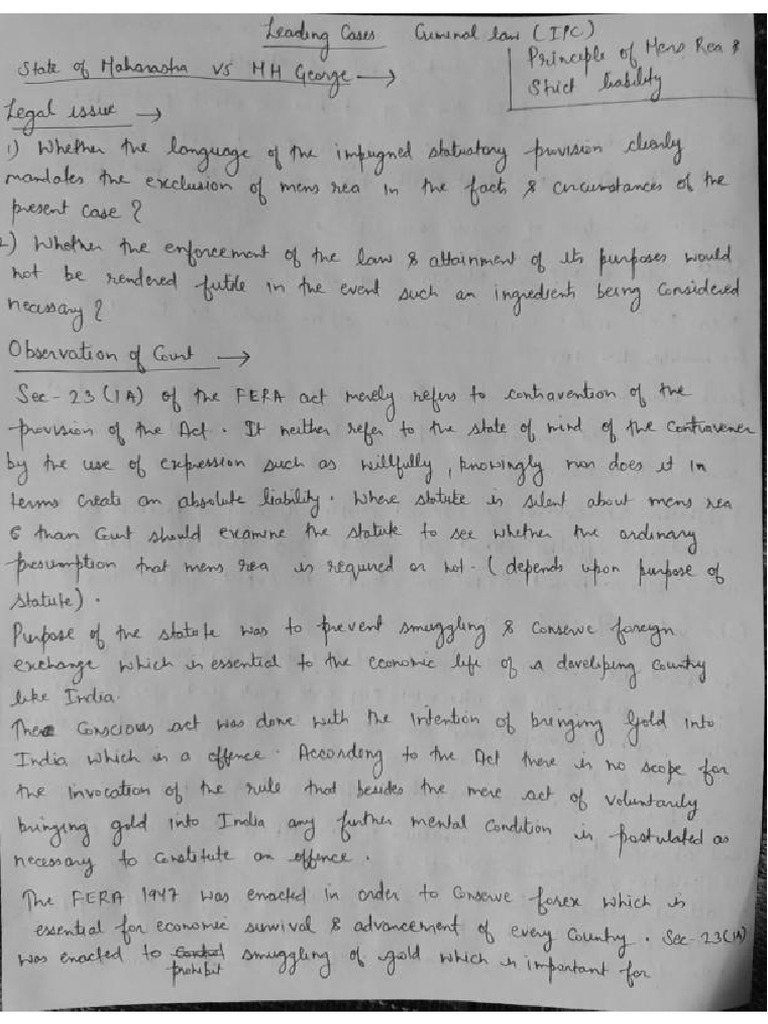 Leading Cases Criminal law (IPC)
State of Maharastra vs MH George →
Principle of Mens Rea &
Strict liability
Legal issue →
1) Whether the language of the impugned statustory provision clearly
mandates the exclusion of mens rea in the facts & circumstances of the
present case?
2) Whether the enforcement of the law & attainment of its purposes would
not be rendered futile in the event such an ingredient being considered
necessary?
Observation of Court →
Sec-23(1A) of the FERA act merely refers to contravention of the
provision of the Act. It neither refer to the state of mind of the contravener
by the use of expression such as willfully, knowingly nor does it in
terms create an absolute liability. Where statute is silent about mens rea
than Court should examine the statute to see whether the ordinary
presumption that mens rea is required or not. (depends upon purpose of
statute).
Purpose of the statute was to prevent smuggling & conserve foreign
exchange which is essential to the economic life of a developing country
like India.
The Conscious act was done with the intention of bringing Gold into
India which is a offence. According to the Act there is no scope for
the invocation of the rule that besides the mere act of voluntarily
bringing gold into India any further mental condition is postulated as
necessary to constitute an offence.
The FERA 1947 was enacted in order to conserve forex which is
essential for economic survival & advancement of every country. Sec-23(1A)
was enacted to control prohibit smuggling of gold which is important for